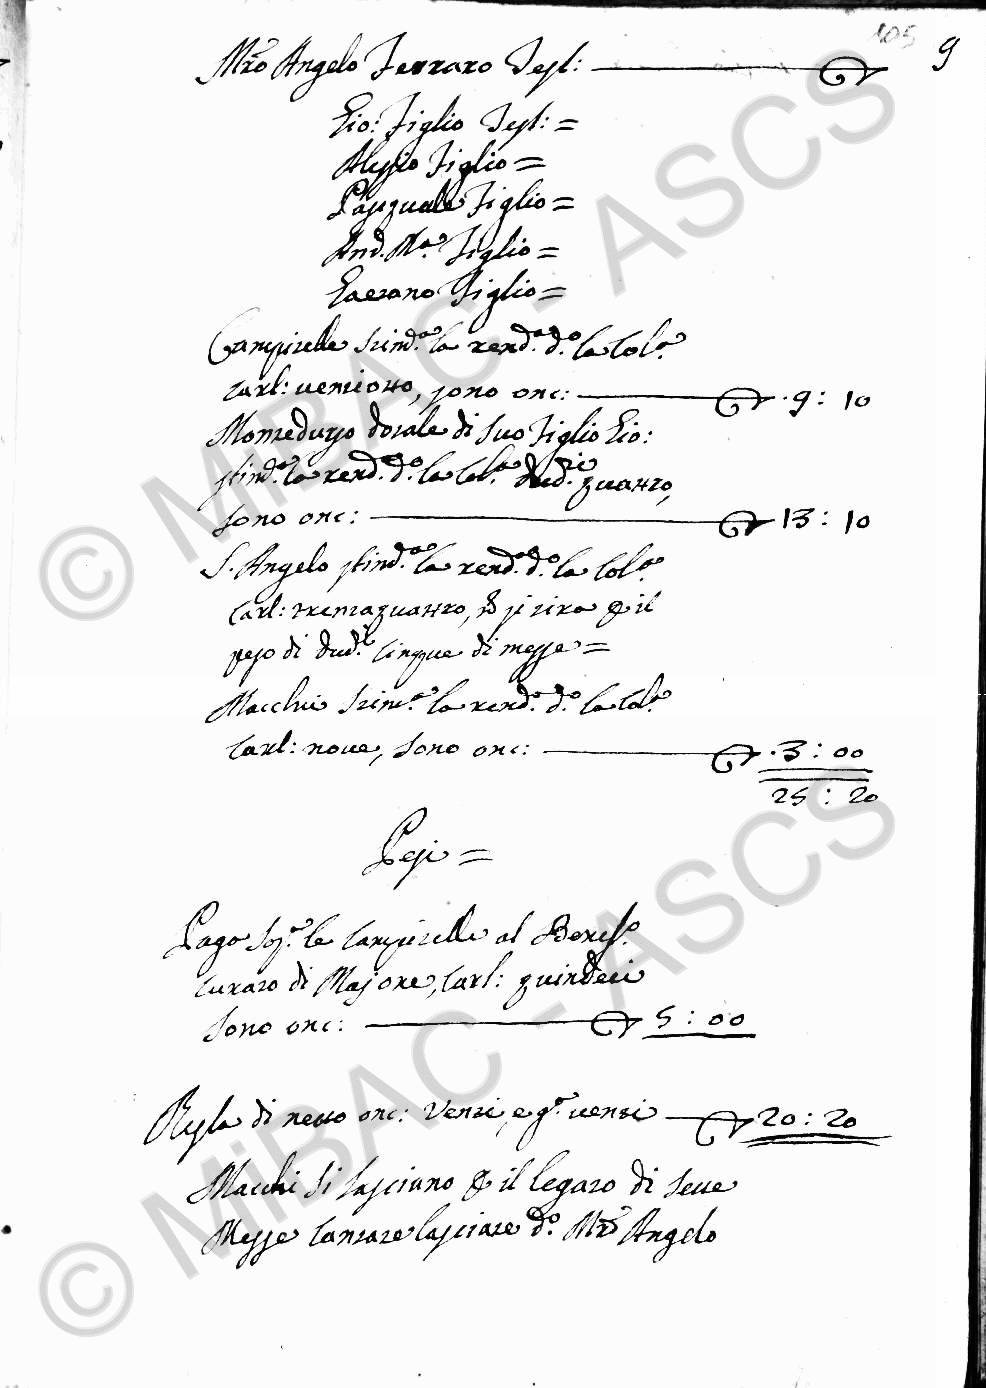 105 9
Mro Angelo Ferraro Test:
Gio: Figlio Test: =
Alessio Figlio =
Pasquale Figlio =
And. Ma. Figlio =
Gaetano Figlio =
Campitelle stimda. la rendta. do. la Colta.
Carl: ventiotto, sono onc: 9 : 10
Monteduro dotale di suo Figlio Gio:
stimda. la rend. do. la Colta. quattro,
sono onc: 13 : 10
S. Angelo stimda. la rend. do. la Colta.
Carl: trentaquattro, si tira il
peso di cinque di messe =
Macchie stima. la rend. do. la Colta.
Carl: nove, sono onc: 3 : 00
25 : 20
Pesi =
Paga sopa. le Campitelle al
Curato di Majone, Carl: quindeci
sono onc: 5 : 00
Resta di netto onc: venti, e gra. venti 20 : 20
Macchi si lasciano il legato di sette
Messe Cantate lasciate do. Mro Angelo
© MiBAC - ASCS
© MiBAC - ASCS